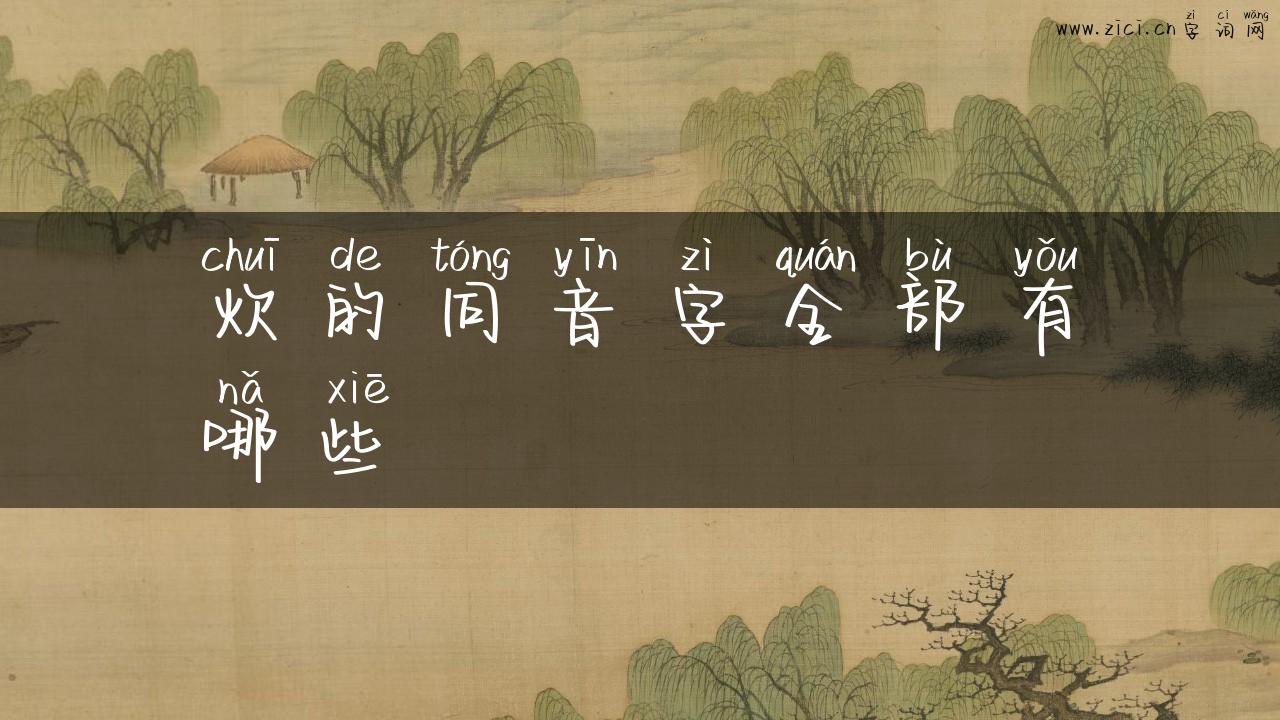 zì cí wǎng
www.zici.cn 字词网
chuī de tóng yīn zì quán bù yǒu
炊的同音字全部有
nǎ xiē
哪些